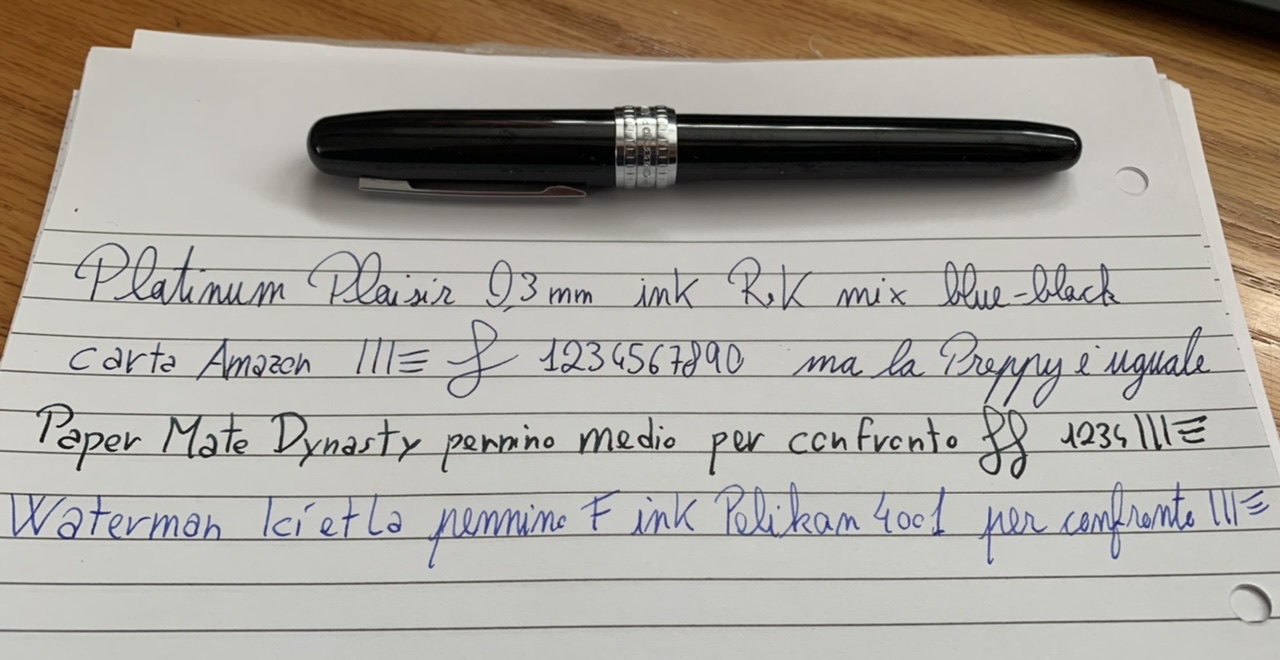 Platinum Plaisir 0,3 mm ink R.K mix blue-black
carta Amazon |||≡ f 1234567890 ma la Preppy è uguale
Paper Mate Dynasty pennino medio per confronto ff 1234 |||≡
Waterman pennino F ink Pelikan 4001 per confronto |||≡